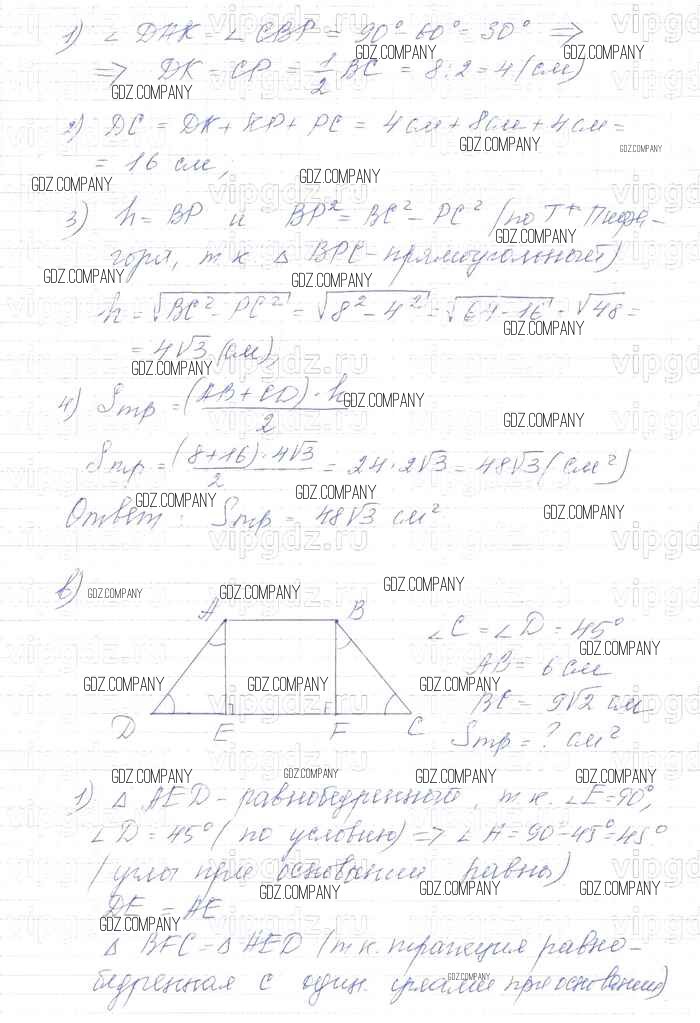 1) ∠ DAK = ∠ CBP = 90° - 60° = 30° ⇒
⇒ DK = CP = 1/2 BC = 8 : 2 = 4 (см)
2) DC = DK + KP + PC = 4 см + 8 см + 4 см =
= 16 см;
3) h = BP и BP² = BC² - PC² (по Т. Пифа-
гора, т.к. Δ BPC - прямоугольный)
h = √BC² - PC² = √8² - 4² = √64 - 16 = √48 =
= 4√3 (см),
4) Sтр = (AB + CD) · h / 2
Sтр = (8 + 16) · 4√3 / 2 = 24 · 2√3 = 48√3 (см²)
Ответ: Sтр = 48√3 см²
в)
A B
D E F C
∠C = ∠D = 45°
AB = 6 см
BC = 9√2 см
Sтр = ? см²
1) Δ AED - равнобедренный, т.к. ∠E = 90°,
∠D = 45° (по условию) ⇒ ∠A = 90° - 45° = 45°
(углы при основании равны)
DE = AE
Δ BFC = Δ AED (т.к. трапеция равно-
бедренная с один. углами при основании)
GDZ.COMPANY
vipgdz.ru